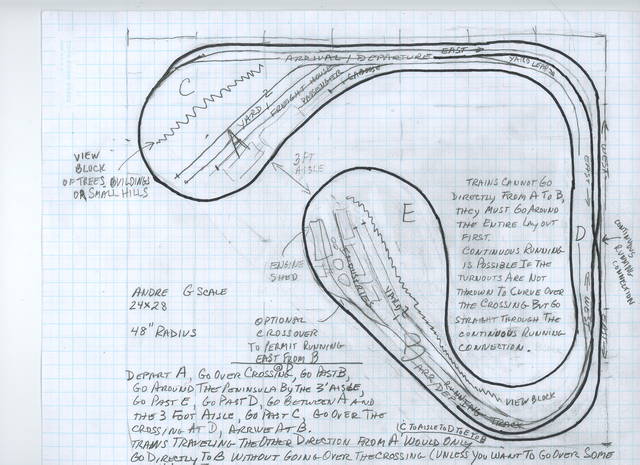 EAST
ARRIVAL / DEPARTURE
YARD LEAD
C
YARD 2
FREIGHT HOUSE
PASSENGER
CABOOSE
A
WEST
EAST
VIEW
BLOCK
OF TREES, BUILDINGS
OR SMALL HILLS
3 FT
AISLE
E
TRAINS CANNOT GO
DIRECTLY FROM A TO B,
THEY MUST GO AROUND
THE ENTIRE LAYOUT
FIRST.
CONTINUOUS RUNNING
IS POSSIBLE IF THE
TURNOUTS ARE NOT
THROWN TO CURVE OVER
THE CROSSING BUT GO
STRAIGHT THROUGH THE
CONTINUOUS RUNNING
CONNECTION.
D
CONTINUOUS
RUNNING
CONNECTION
WEST
ENGINE
SHED
INDUSTRIES
YARD 2
B
ARR/DEP
RUNNING TRACK
VIEW BLOCK
ANDRE G SCALE
24X28
48" RADIUS
OPTIONAL
CROSSOVER
TO PERMIT RUNNING
EAST FROM B
DEPART A, GO OVER CROSSING @ D, GO PAST B,
GO AROUND THE PENINSULA BY THE 3' AISLE,
GO PAST E, GO PAST D, GO BETWEEN A AND
THE 3 FOOT AISLE, GO PAST C, GO OVER THE
CROSSING AT D, ARRIVE AT B.
(C TO AISLE TO D TO E TO B
TRAINS TRAVELING THE OTHER DIRECTION FROM A WOULD ONLY
GO DIRECTLY TO B WITHOUT GOING OVER THE CROSSING (UNLESS YOU WANT TO GO OVER SOME